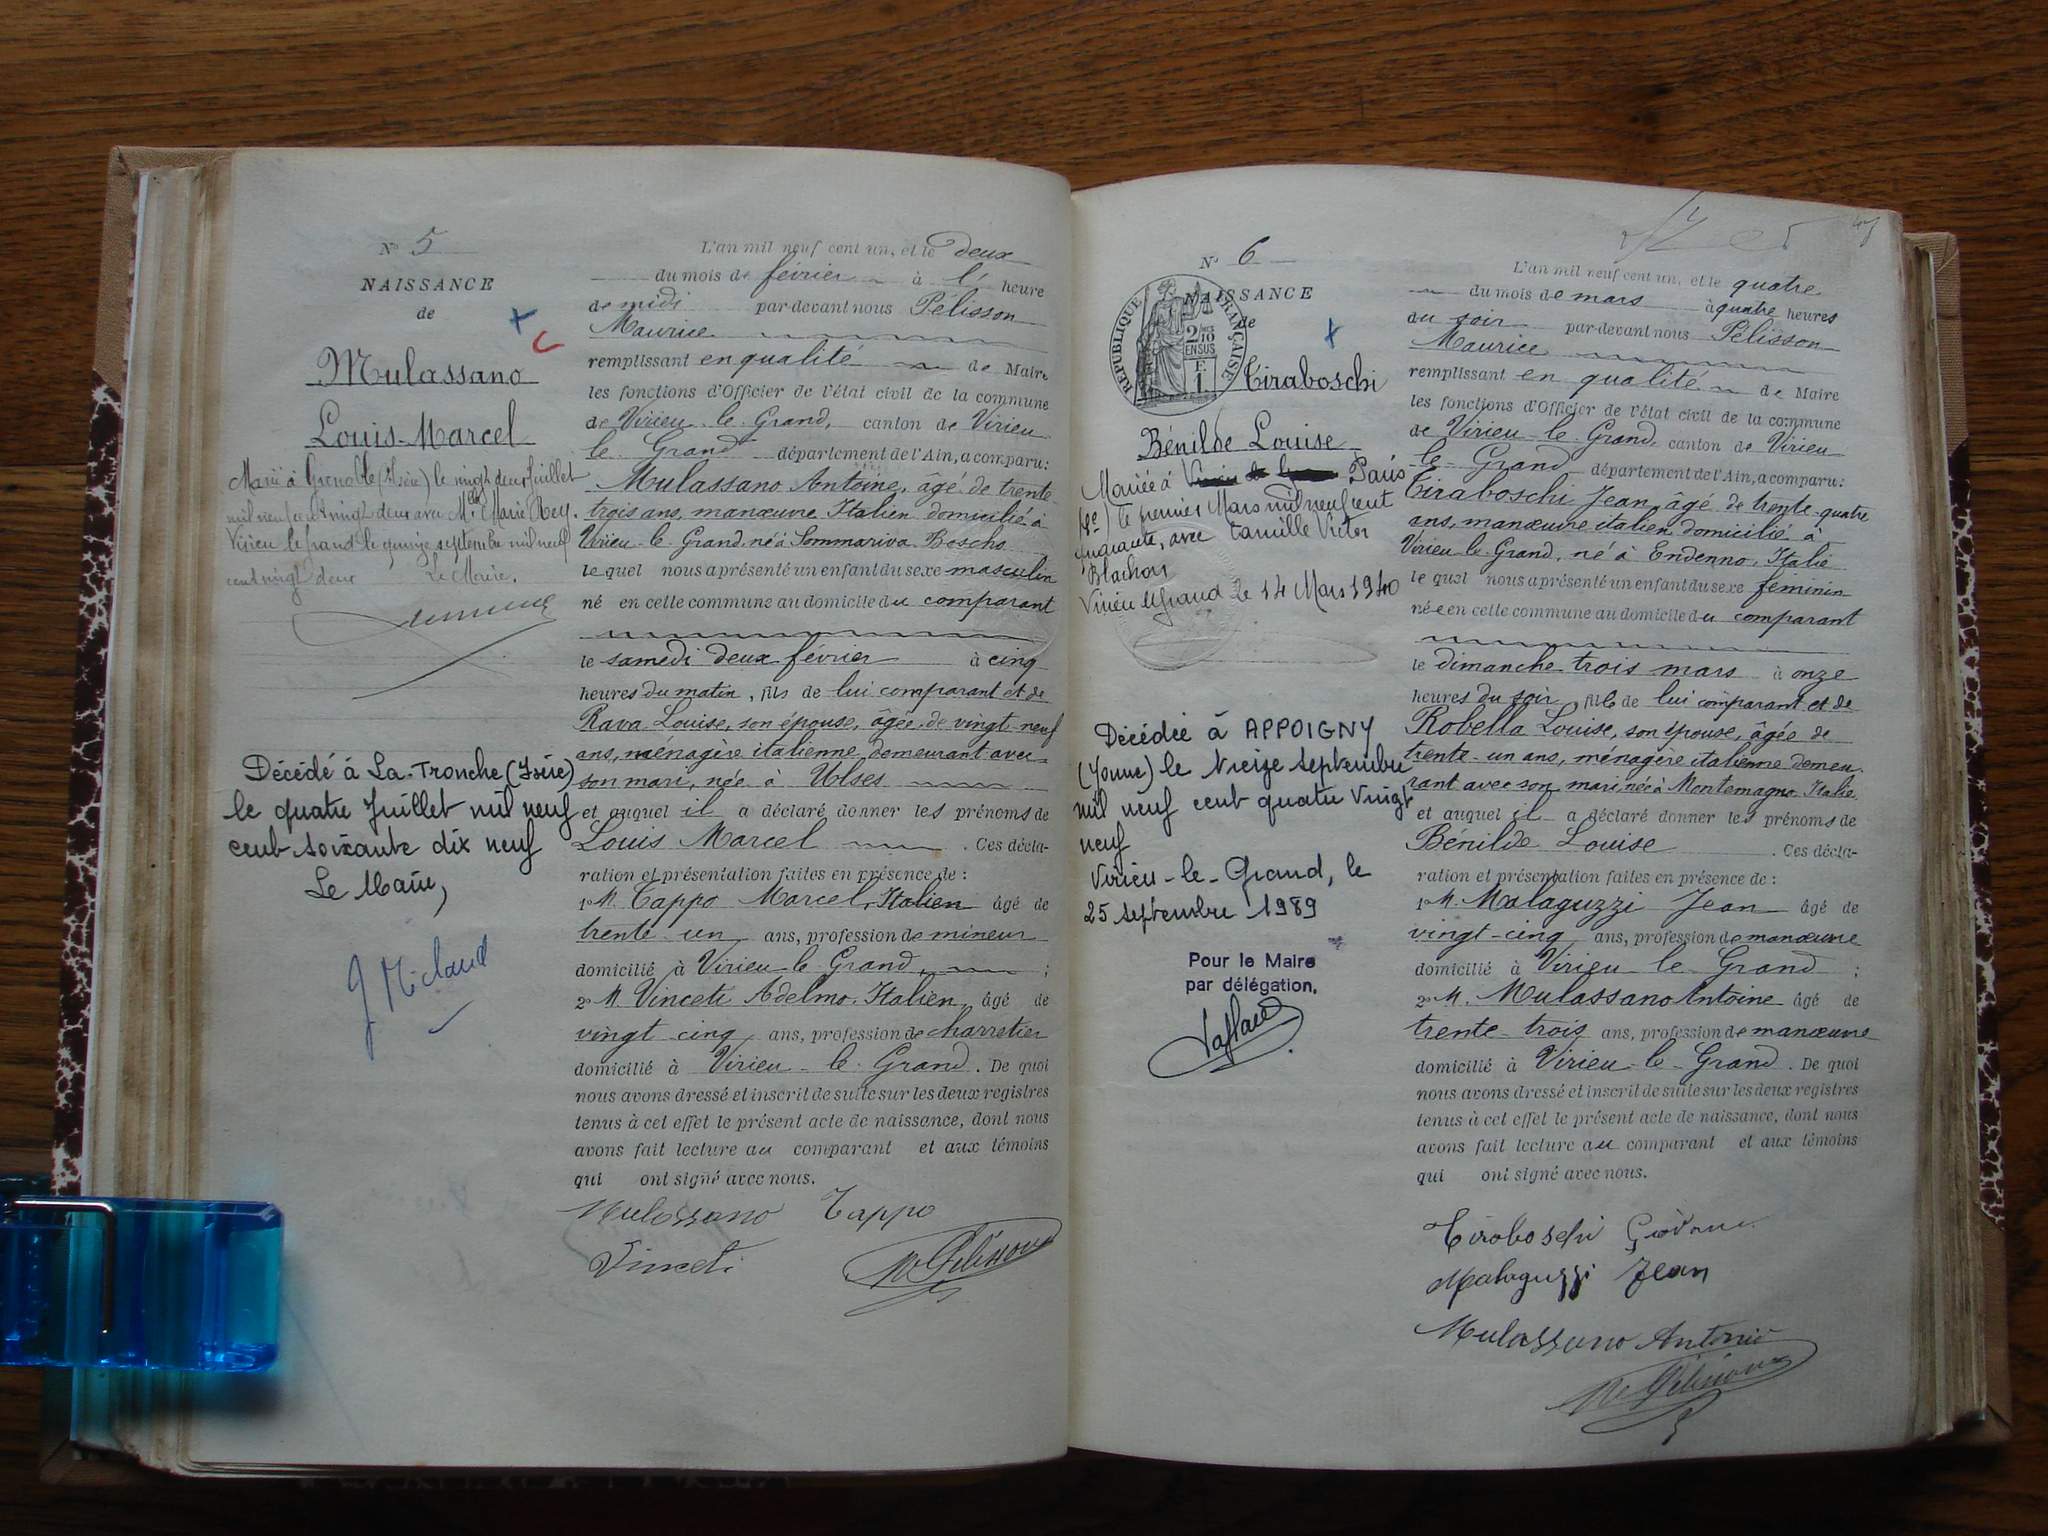 N° 5
NAISSANCE
de
Mulassano
Louis-Marcel
Marié à Grenoble (Isère) le vingt deux Juillet
mil neuf cent vingt deux avec Melle Marie Rey.
Virieu le Grand le quinze septembre mil neuf
cent vingt deux Le Maire,
Décédé à La-Tronche (Isère)
le quatre Juillet mil neuf
cent soixante dix neuf
Le Maire,
L'an mil neuf cent un, et le deux
du mois de février à l' heure
de midi par-devant nous Pélisson
Maurice
remplissant en qualité de Maire
les fonctions d'Officier de l'état civil de la commune
de Virieu-le-Grand, canton de Virieu
le Grand département de l'Ain, a comparu:
Mulassano Antoine, âgé de trente
trois ans, manœuvre Italien domicilié à
Virieu-le-Grand, né à Sommariva Boscho
lequel nous a présenté un enfant du sexe masculin
né en cette commune au domicile du comparant
le samedi deux février à cinq
heures du matin, fils de lui comparant et de
Rava Louise, son épouse, âgée de vingt-neuf
ans, ménagère italienne, demeurant avec
son mari, née à
et auquel il a déclaré donner les prénoms de
Louis Marcel . Ces décla-
ration et présentation faites en présence de :
1° M. Tappo Marcel, Italien âgé de
trente un ans, profession de mineur
domicilié à Virieu-le-Grand, ;
2° M. Vinceti Adelmo, Italien, âgé de
vingt cinq ans, profession de charretier
domicilié à Virieu-le-Grand. De quoi
nous avons dressé et inscrit de suite sur les deux registres
tenus à cet effet le présent acte de naissance, dont nous
avons fait lecture au comparant et aux témoins
qui ont signé avec nous.
Mulassano Tappo
Vinceti M Pélisson
N° 6
NAISSANCE
de
RÉPUBLIQUE FRANÇAISE
2/10
EN SUS
Tiraboschi
Bénilde Louise
Mariée à Paris
le premier Mars mil neuf cent
quarante, avec Camille Victor
Blachon
Virieu le Grand le 14 Mars 1940
Décédée à APPOIGNY
(Yonne) le treize septembre
mil neuf cent quatre vingt
neuf
Virieu-le-Grand, le
25 septembre 1989
Pour le Maire
par délégation,
L'an mil neuf cent un, et le quatre
du mois de mars à quatre heures
du soir par-devant nous Pélisson
Maurice
remplissant en qualité de Maire
les fonctions d'Officier de l'état civil de la commune
de Virieu-le-Grand, canton de Virieu
le Grand département de l'Ain, a comparu:
Tiraboschi Jean, âgé de trente-quatre
ans, manœuvre italien, domicilié à
Virieu-le-Grand, né à Endenno, Italie
lequel nous a présenté un enfant du sexe féminin
née en cette commune au domicile du comparant
le dimanche trois mars à onze
heures du soir, fille de lui comparant et de
Robella Louise, son épouse, âgée de
trente-un ans, ménagère italienne demeu-
rant avec son mari, née à Montemagno Italie
et auquel il a déclaré donner les prénoms de
Bénilde Louise . Ces décla-
ration et présentation faites en présence de :
1° M. Malaguzzi Jean âgé de
vingt-cinq ans, profession de manœuvre
domicilié à Virieu-le-Grand ;
2° M. Mulassano Antoine âgé de
trente-trois ans, profession de manœuvre
domicilié à Virieu-le-Grand. De quoi
nous avons dressé et inscrit de suite sur les deux registres
tenus à cet effet le présent acte de naissance, dont nous
avons fait lecture au comparant et aux témoins
qui ont signé avec nous.
Tiraboschi
Malaguzzi Jean
Mulassano Antonio
M Pélisson